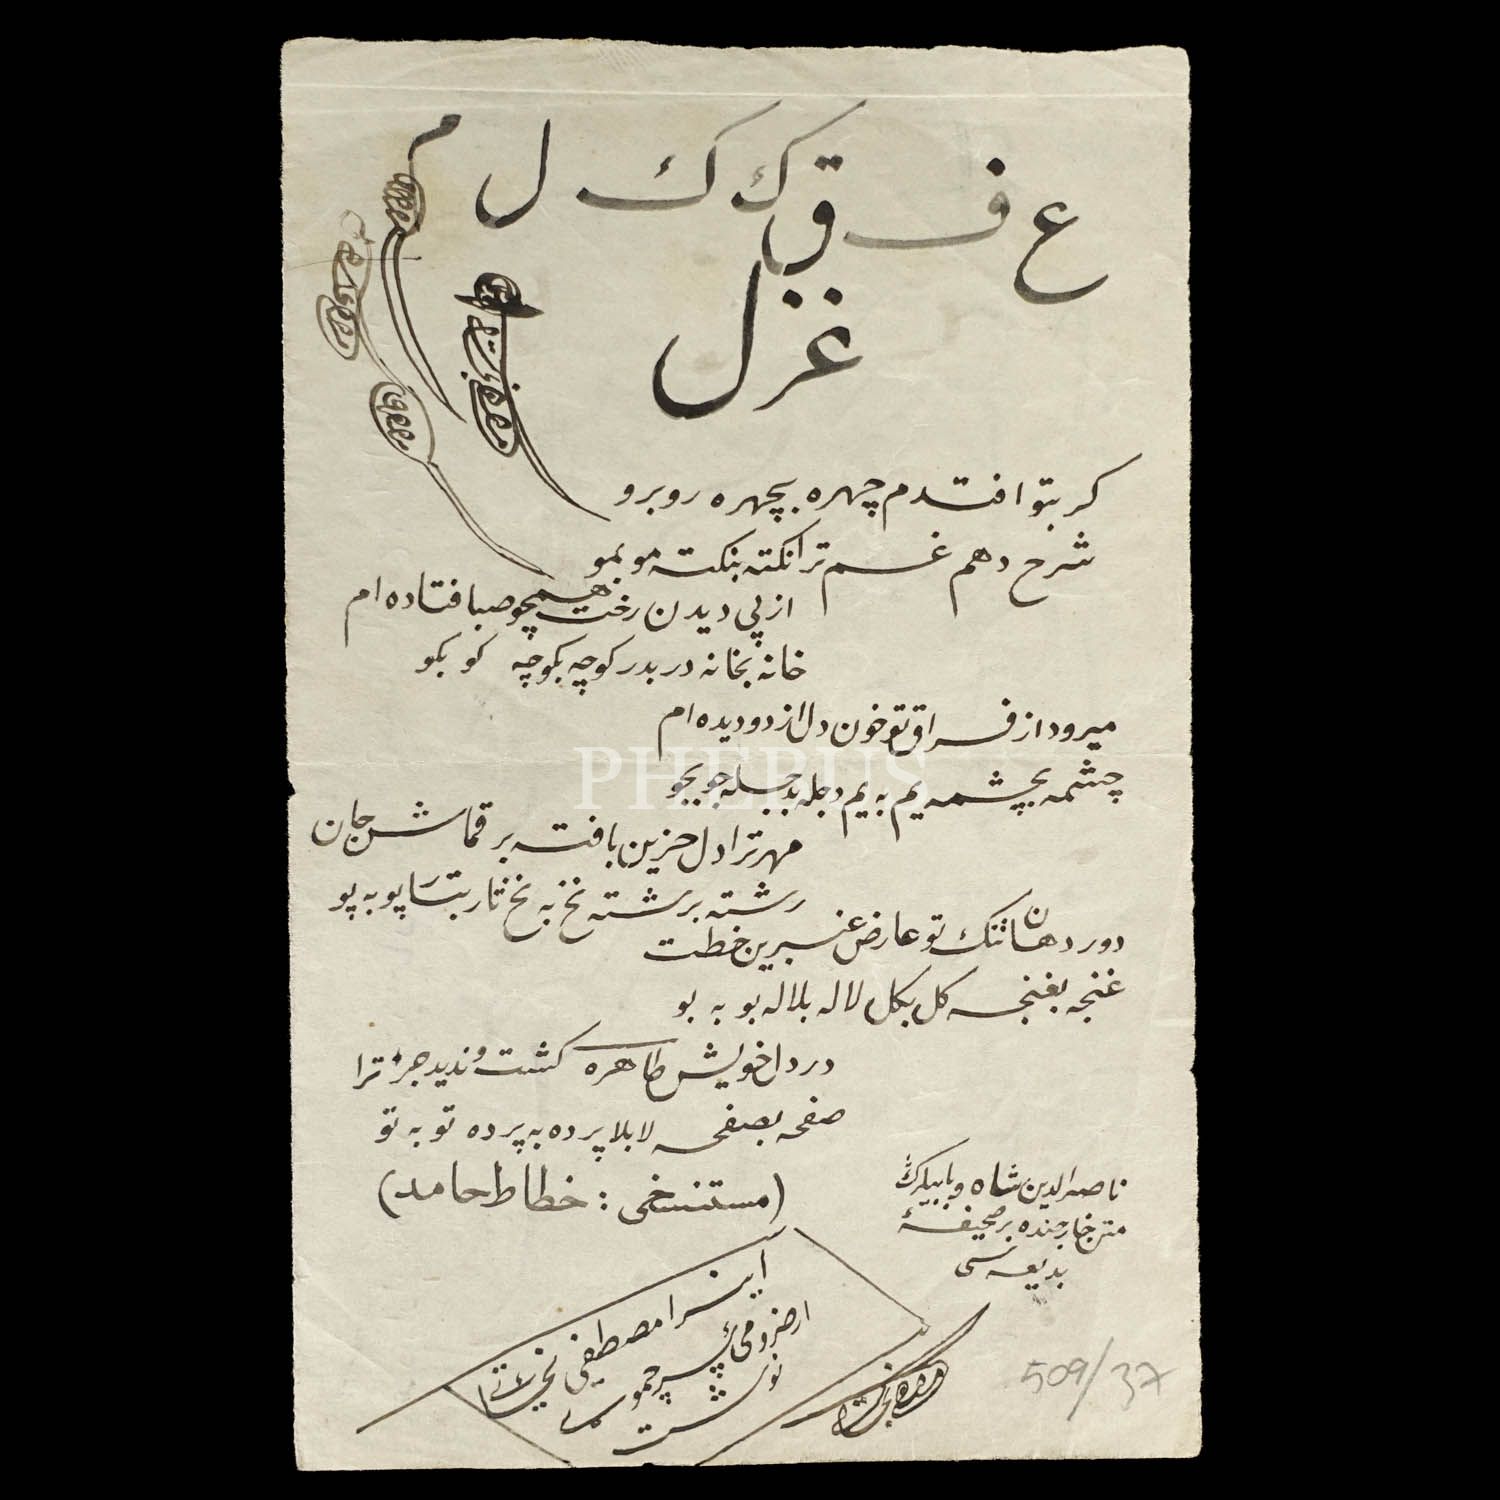 ع ف ق ك ك ل م
غزل
كر بتو افتدم چهره بچهره روبرو
شرح دهم غم ترا نكته بنكته موبمو
از پی دیدن رخت همچو صبا فتاده ام
خانه بخانه در بدر كوچه بكوچه كو بكو
میرود از فراق تو خون دل از دو دیده ام
چشمه بچشمه یم به یم دجله بدجله جو بجو
مهر ترا دل حزین بافته بر قماش جان
رشته برشته نخ به نخ تار بتار پو به پو
دور دهان تنك تو عارض عنبرین خطت
غنچه بغنچه كل بكل لاله بلاله بو به بو
در دل خویش طاهره كشت و ندید جز ترا
صفحه بصفحه لا بلا پرده به پرده تو به تو
(مستنسخی : خطاط حامد)
ناصر الدین شاه و بابیلرك
بدیعه سی
اینرا مصطفی
نوشت
509/37
PHEBUS